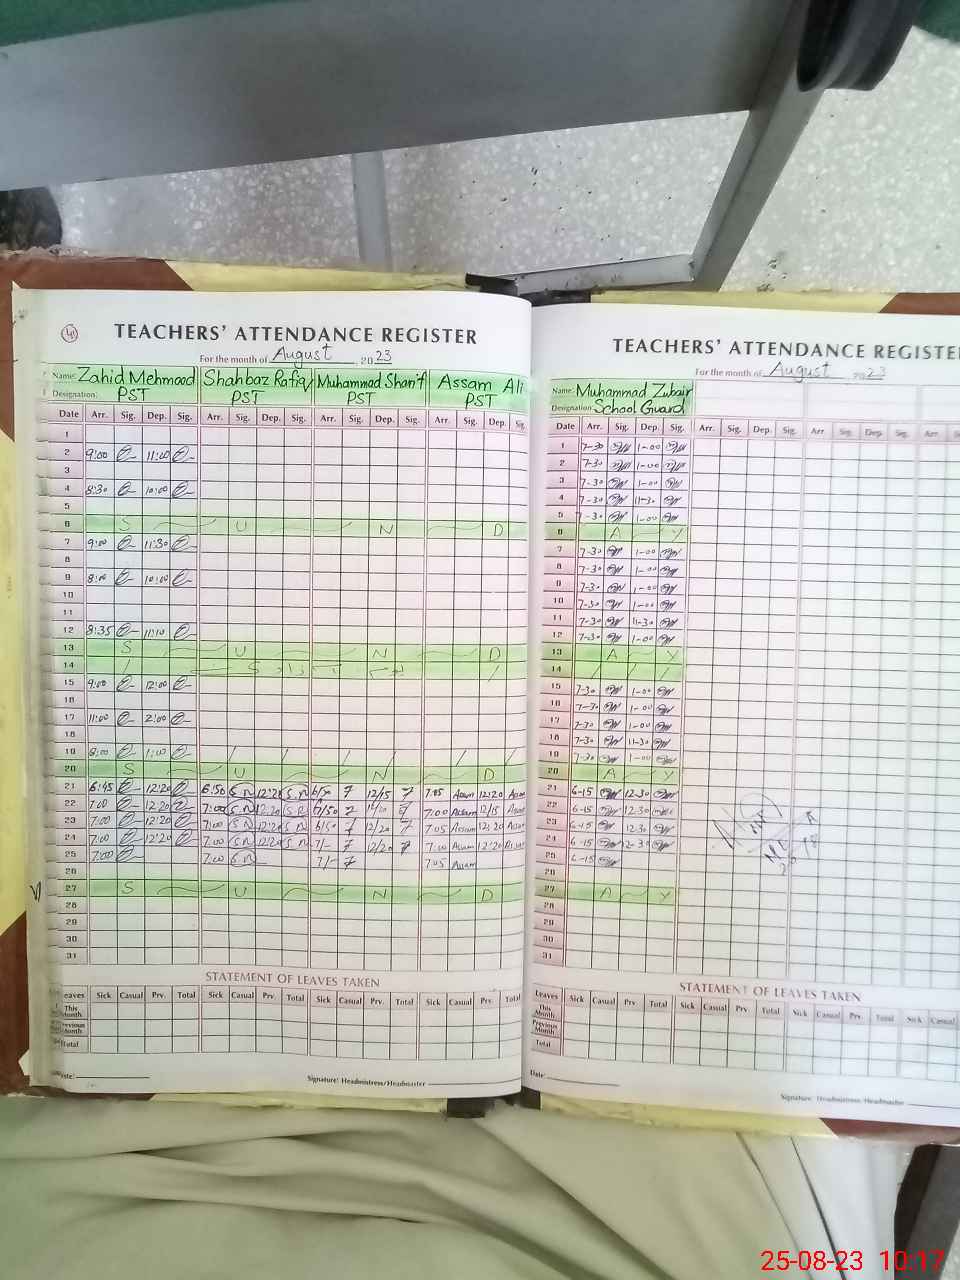 TEACHERS' ATTENDANCE REGISTER
For the month of August, 2023
Name: Zahid Mehmood Shahbaz Rafiq Muhammad Sharif Assam Ali
Designation: PST PST PST PST
Date Arr. Sig. Dep. Sig. Arr. Sig. Dep. Sig. Arr. Sig. Dep. Sig. Arr. Sig. Dep. Sig.
1
2 9:00 11:00
3
4 8:30 10:00
5
6 S U N D
7 9:00 11:30
8
9 8:00 10:00
10
11
12 8:35 11:10
13 S U N D
14
15 9:00 12:00
16
17 11:00 2:00
18
19 8:00 1:00
20 S U N D
21 6:45 12:20 6:50 S.R 12:20 S.R 6/50 12/15 7:05 Assam 12:20 Assam
22 7:00 12:20 7:00 S.R 12:20 S.R 6/50 7:00 Assam 12/15 Assam
23 7:00 12:20 7:00 S.R 12:20 S.R 6/50 12/20 7:05 Assam 12:20 Assam
24 7:00 12:20 7:00 S.R 12:20 S.R 7/- 12/20 7:00 Assam 12:20 Assam
25 7:00 7:00 S.R 7/- 7:05 Assam
26
27 S U N D
28
29
30
31
STATEMENT OF LEAVES TAKEN
Leaves Sick Casual Prv. Total Sick Casual Prv. Total Sick Casual Prv. Total Sick Casual Prv. Total
This Month
Previous Month
Total
Signature: Headmistress/Headmaster
TEACHERS' ATTENDANCE REGISTER
For the month of August 2023
Name: Muhammad Zubair
Designation: School Guard
Date Arr. Sig. Dep. Sig. Arr. Sig. Dep. Sig. Arr Sig. Dep. Sig. Arr
1 7-30 1-00
2 7-30 1-00
3 7-30 1-00
4 7-30 11-30
5 7-30 1-00
6 A Y
7 7-30 1-00
8 7-30 1-00
9 7-30 1-00
10 7-30 1-00
11 7-30 11-30
12 7-30 1-00
13 A Y
14
15 7-30 1-00
16 7-30 1-00
17 7-30 1-00
18 7-30 11-30
19 7-30 1-00
20 A Y
21 6-15 12-30
22 6-15 12-30
23 6-15 12-30
24 6-15 12-30
25 6-15
26
27 A Y
28
29
30
31
STATEMENT OF LEAVES TAKEN
Leaves Sick Casual Prv Total Sick Casual Prv. Total Sick Casual Prv. Total Sick Casual
This Month
Previous Month
Total
Date:
Signature: Headmistress/Headmaster
25-08-23 10:17